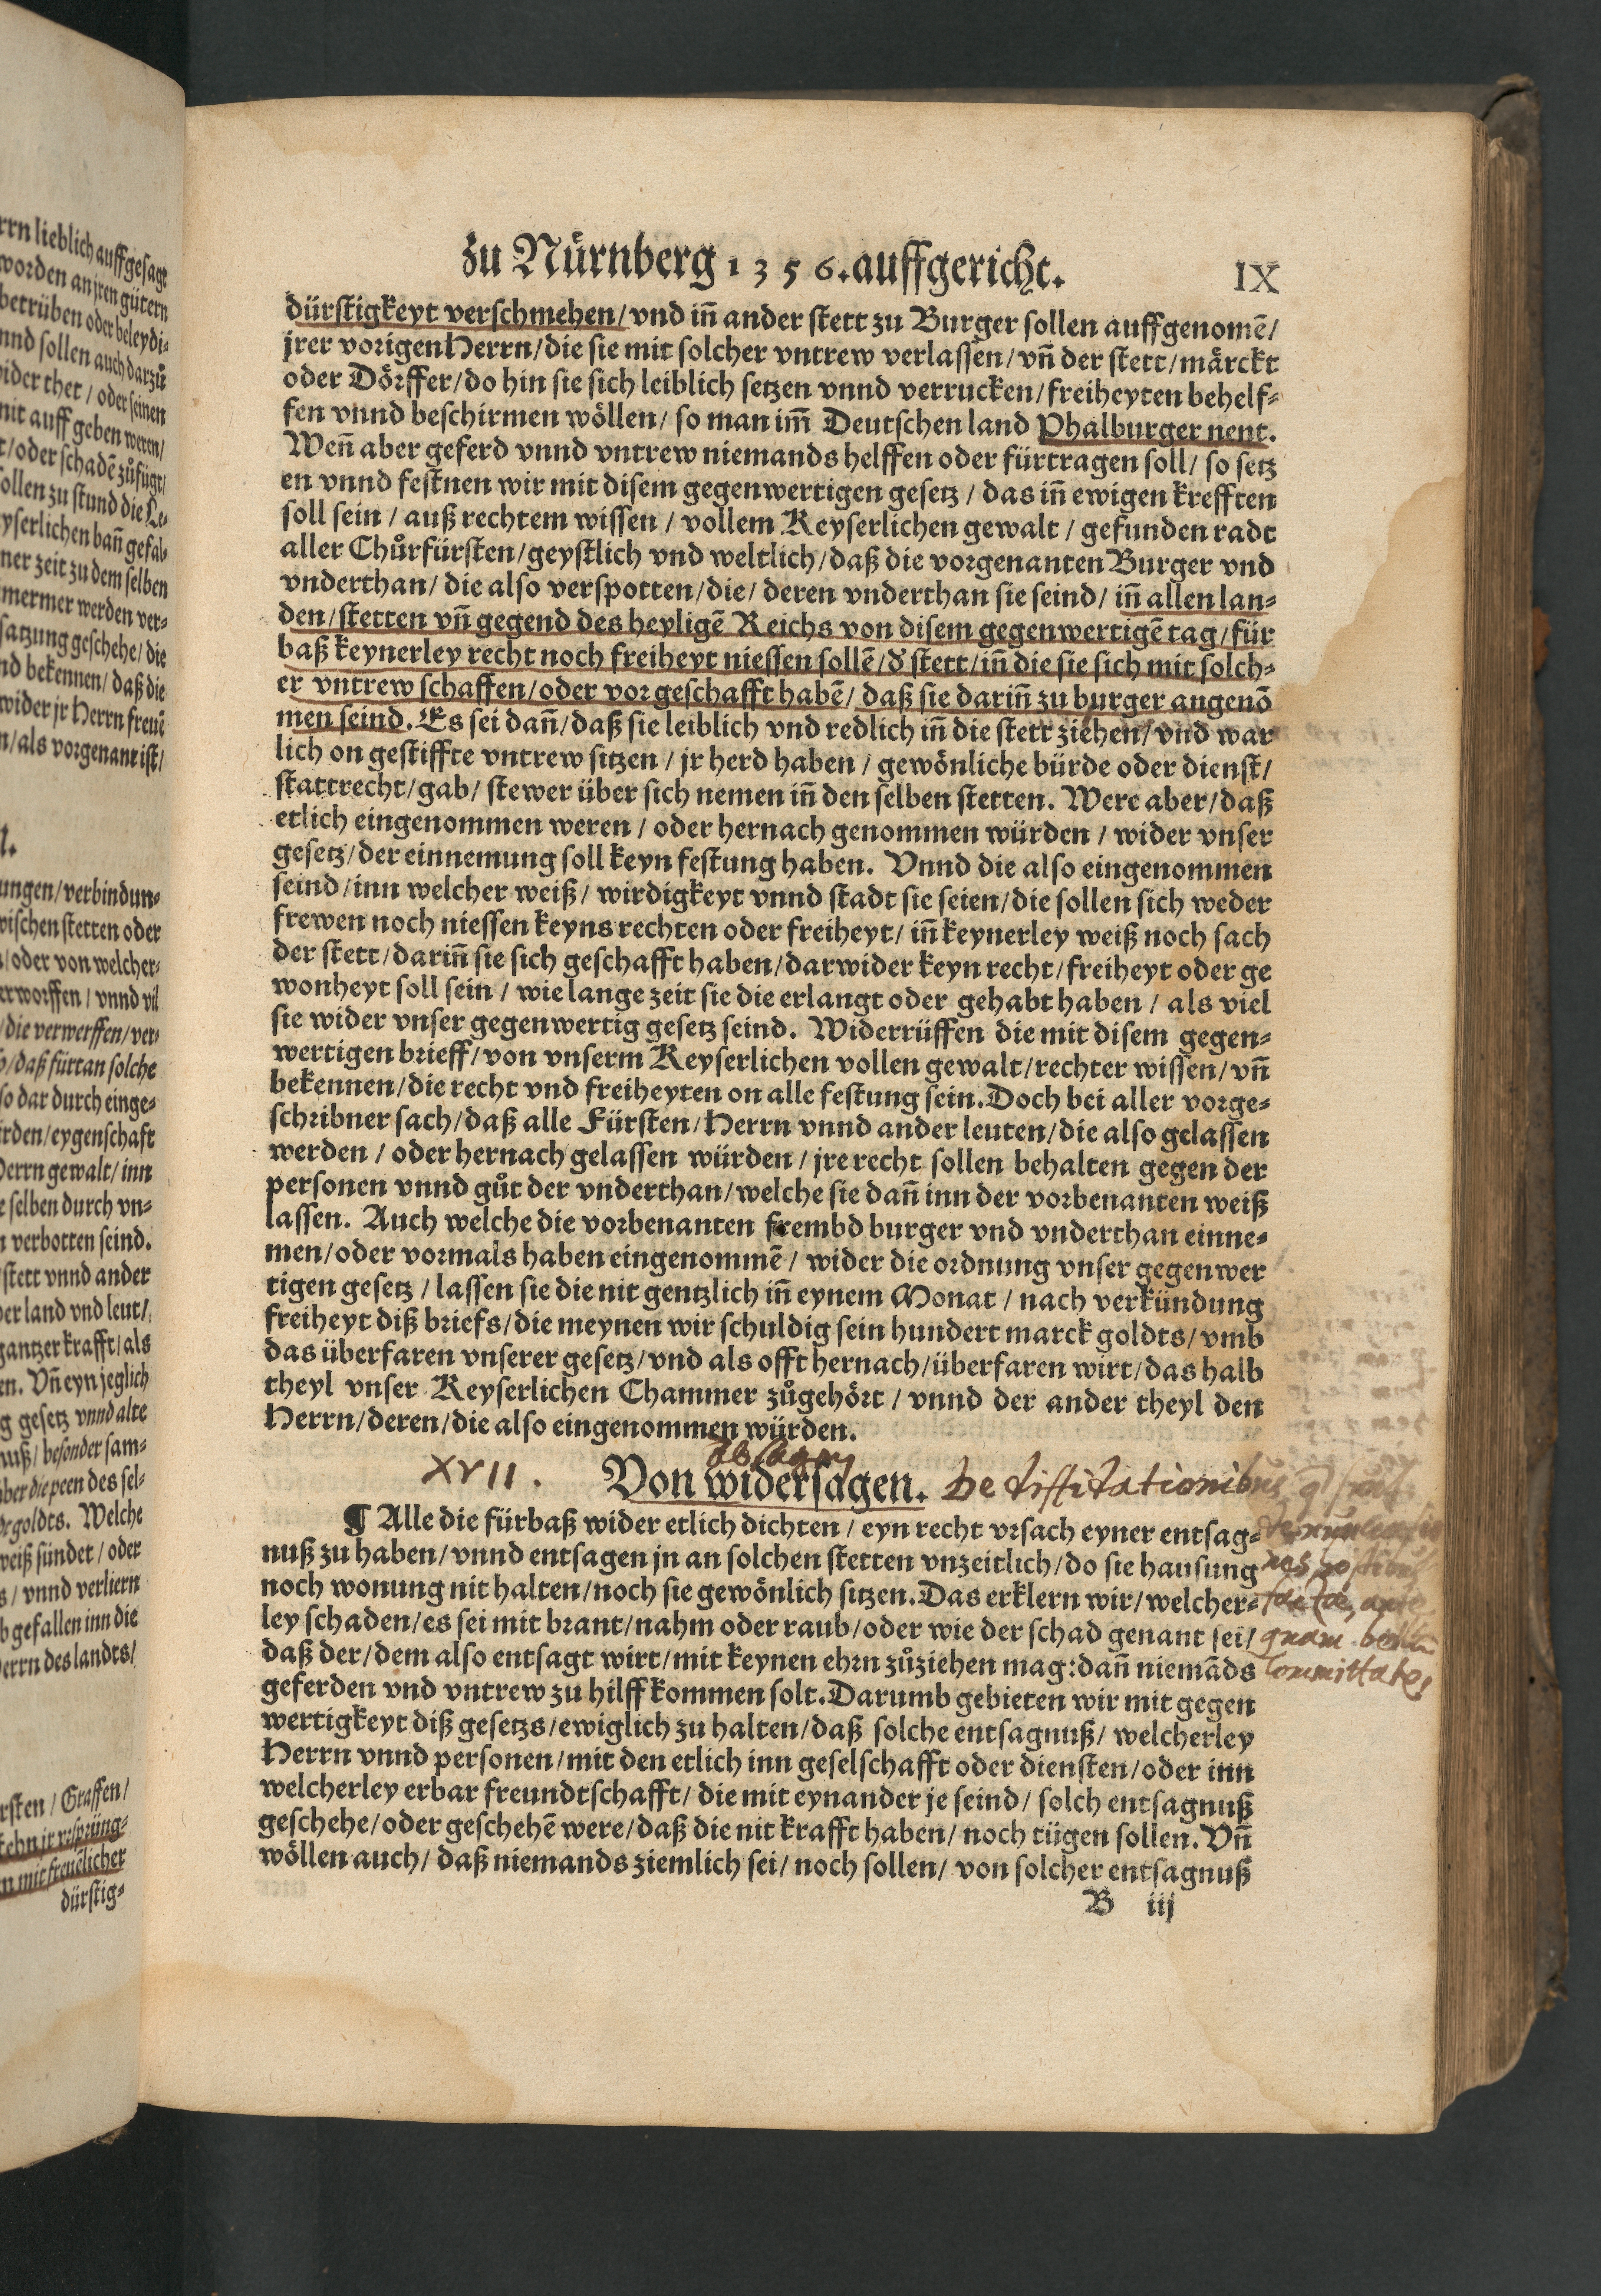 rrn lieblich auffgesagt
worden an jren gütern
betrüben oder beleydi-
nnd sollen auch darzů
wider thet / oder seinen
nit auff geben weren /
t / oder schadē zůfügt /
ollen zu stund die Le-
yserlichen bañ gefal-
ner zeit zu dem selben
mermer werden ver-
satzung geschehe / die
nd bekennen / daß die
wider jr Herrn freuē
n / als vorgenant ist /
l.
ungen / verbindun-
wischen stetten oder
/ oder von welcher-
erworffen / vnnd vil
/ die verwerffen / ver-
/ daß fürtan solche
so dar durch einge-
irden / eygenschaft
Herrn gewalt / inn
e selben durch vn-
n verbotten seind.
stett vnnd ander
her land vnd leut /
gantzer krafft / als
en. Vñ eyn jeglich
g gesetz vnnd alte
nuß / besonder sam-
ber die peen des sel-
goldts. Welche
weiß sündet / oder
s / vnnd verliern
b gefallen inn die
Herrn des landts /
rsten / Graffen /
n mit freuēlicher
dürstig-
zu Nürnberg 1356. auffgericht.
IX
dürstigkeyt verschmehen / vnd iñ ander stett zu Burger sollen auffgenomē /
jrer vorigen Herrn / die sie mit solcher vntrew verlassen / vñ der stett / märckt
oder Dörffer / do hin sie sich leiblich setzen vnnd verrucken / freiheyten behelf-
fen vnnd beschirmen wöllen / so man im̃ Deutschen land Phalburger nent.
Weñ aber geferd vnnd vntrew niemands helffen oder fürtragen soll / so setz
en vnnd festnen wir mit disem gegenwertigen gesetz / das iñ ewigen krefften
soll sein / auß rechtem wissen / vollem Keyserlichen gewalt / gefunden radt
aller Chůrfürsten / geystlich vnd weltlich / daß die vorgenanten Burger vnd
vnderthan / die also verspotten / die / deren vnderthan sie seind / iñ allen lan-
den / stetten vñ gegend des heyligē Reichs von disem gegenwertigē tag / für
baß keynerley recht noch freiheyt niessen sollē / d̕ stett / iñ die sie sich mit solch-
er vntrew schaffen / oder vor geschafft habē / daß sie dariñ zu burger angenō
men seind. Es sei dañ / daß sie leiblich vnd redlich iñ die stett ziehen / vnd war
lich on gestiffte vntrew sitzen / jr herd haben / gewönliche bürde oder dienst /
stattrecht / gab / stewer über sich nemen iñ den selben stetten. Were aber / daß
etlich eingenommen weren / oder hernach genommen würden / wider vnser
gesetz / der einnemung soll keyn festung haben. Vnnd die also eingenommen
seind / inn welcher weiß / wirdigkeyt vnnd stadt sie seien / die sollen sich weder
frewen noch niessen keyns rechten oder freiheyt / iñ keynerley weiß noch sach
der stett / dariñ sie sich geschafft haben / darwider keyn recht / freiheyt oder ge
wonheyt soll sein / wie lange zeit sie die erlangt oder gehabt haben / als viel
sie wider vnser gegenwertig gesetz seind. Widerrüffen die mit disem gegen-
wertigen brieff / von vnserm Keyserlichen vollen gewalt / rechter wissen / vñ
bekennen / die recht vnd freiheyten on alle festung sein. Doch bei aller vorge-
schribner sach / daß alle Fürsten / Herrn vnnd ander leuten / die also gelassen
werden / oder hernach gelassen würden / jre recht sollen behalten gegen der
personen vnnd gůt der vnderthan / welche sie dañ inn der vorbenanten weiß
lassen. Auch welche die vorbenanten frembd burger vnd vnderthan einne-
men / oder vormals haben eingenommē / wider die ordnung vnser gegenwer
tigen gesetz / lassen sie die nit gentzlich iñ eynem Monat / nach verkündung
freiheyt diß briefs / die meynen wir schuldig sein hundert marck goldts / vmb
das überfaren vnserer gesetz / vnd als offt hernach / überfaren wirt / das halb
theyl vnser Keyserlichen Chammer zůgehört / vnnd der ander theyl den
Herrn / deren / die also eingenommen würden.
absagen
XVII. Von widersagen. De diffidationibus
¶ Alle die fürbaß wider etlich dichten / eyn recht vrsach eyner entsag-
nuß zu haben / vnnd entsagen jn an solchen stetten vnzeitlich / do sie hausung
noch wonung nit halten / noch sie gewönlich sitzen. Das erklern wir / welcher-
ley schaden / es sei mit brant / nahm oder raub / oder wie der schad genant sei /
quam bellū
daß der / dem also entsagt wirt / mit keynen ehrn zůziehen mag: dañ niemāds
committatᵉ
geferden vnd vntrew zu hilff kommen solt. Darumb gebieten wir mit gegen
wertigkeyt diß gesetzs / ewiglich zu halten / daß solche entsagnuß / welcherley
Herrn vnnd personen / mit den etlich inn geselschafft oder diensten / oder inn
welcherley erbar freundtschafft / die mit eynander je seind / solch entsagnuß
geschehe / oder geschehē were / daß die nit krafft haben / noch tügen sollen. Vñ
wöllen auch / daß niemands ziemlich sei / noch sollen / von solcher entsagnuß
B iij